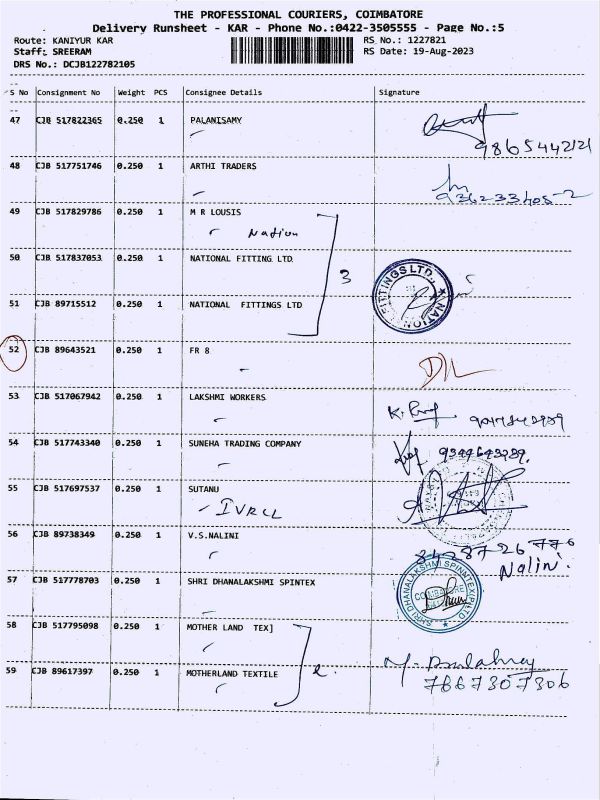 THE PROFESSIONAL COURIERS, COIMBATORE
Delivery Runsheet - KAR - Phone No.:0422-3505555 - Page No.:5
Route: KANIYUR KAR RS No.: 1227821
Staff: SREERAM RS Date: 19-Aug-2023
DRS No.: DCJB122782105
S No Consignment No Weight PCS Consignee Details Signature
47 CJB 517822365 0.250 1 PALANISAMY
9865442121
48 CJB 517751746 0.250 1 ARTHI TRADERS
49 CJB 517829786 0.250 1 M R LOUSIS
Nation
50 CJB 517837053 0.250 1 NATIONAL FITTING LTD 3
FITTINGS LTD. ★ NATION
51 CJB 89715512 0.250 1 NATIONAL FITTINGS LTD
52 CJB 89643521 0.250 1 FR 8
53 CJB 517067942 0.250 1 LAKSHMI WORKERS
54 CJB 517743340 0.250 1 SUNEHA TRADING COMPANY 9344643289.
55 CJB 517697537 0.250 1 SUTANU
IVRCL
56 CJB 89738349 0.250 1 V.S.NALINI
8428726776
Nalini
57 CJB 517778703 0.250 1 SHRI DHANALAKSHMI SPINTEX
SHRI DHANALAKSHMI SPINNTEX (P) LTD. COIMBATORE
58 CJB 517795098 0.250 1 MOTHER LAND TEX]
59 CJB 89617397 0.250 1 MOTHERLAND TEXTILE
7867307306